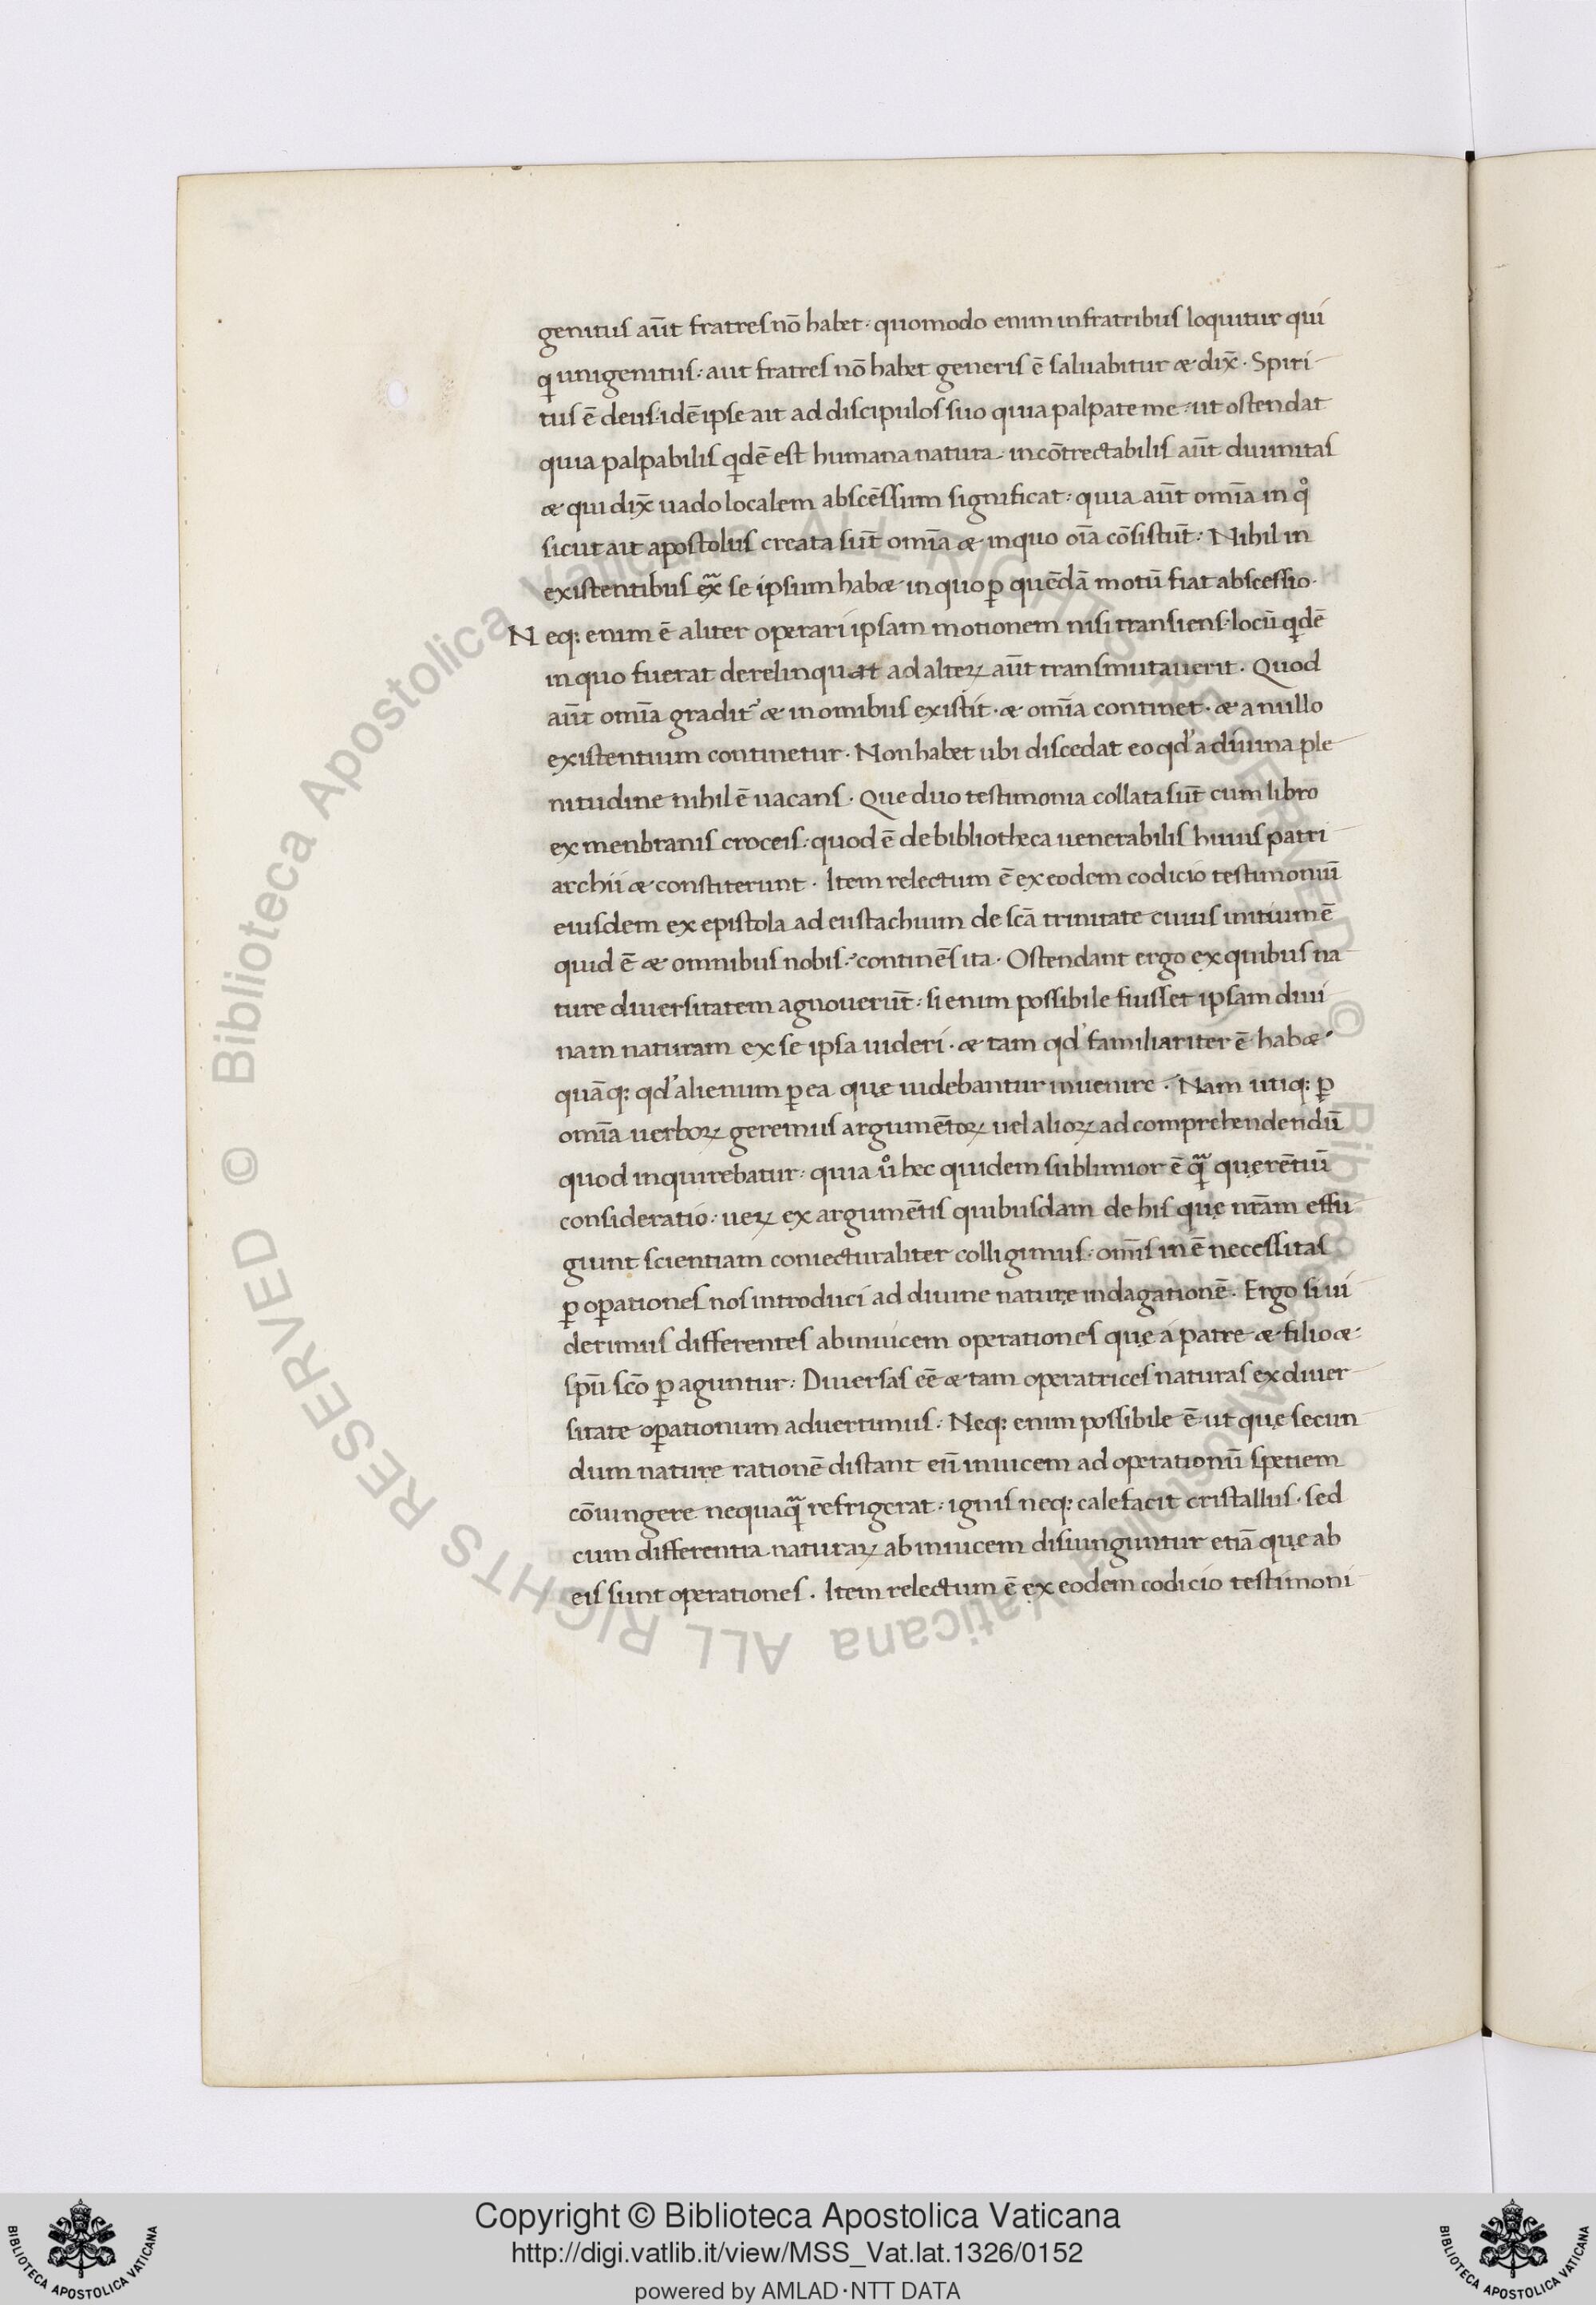 genitus aūt fratres nō habet · quomodo enim in fratribus loquitur qui
q unigenitus : aut fratres nō habet generis ē saluabitur æ dix̄ · Spiri-
tus ē deus · idē ipse ait ad discipulos suo quia palpate me · ut ostendat
quia palpabilis qdē est humana natura · incōtrectabilis aūt diuinitas
æ qui dix̄ uado localem abscēssum significat : quia aūt omīa in qͦ
sicut ait apostolus creata sūt omīa æ in quo oīa cōsistūt : Nihil in
existentibus ex̄ se ipsum habæ in quo ꝑ quēdā motū fiat abscessio ·
Neq: enim ē aliter operari ipsam motionem nisi transiens · locū qdē
in quo fuerat derelinquat ad alteꝝ aūt transmutauerit · Quod
aūt omīa gradit᷑ æ in omibus existit · æ omīa continet · æ a nullo
existentium continetur · Non habet ubi discedat eo qd' a diuina ple-
nitudine nihil ē uacans · Que duo testimonia collata sūt cum libro
ex menbranis croceis : quod ē de bibliotheca uenerabilis huius patri-
archii æ constiterunt · Item relectum ē ex eodem codicio testimoniū
eiusdem ex epistola ad eustachium de scā trinitate cuius initium ē
quid ē æ omnibus nobis : continēs ita · Ostendant ergo ex quibus na
ture diuersitatem agnouerūt : si enim possibile fuisset ipsam diui
nam naturam ex se ipsa uideri · æ tam qd' familiariter ē habæ
quāq: qd' alienum ꝑ ea quę uidebantur inuenire · Nam utiq: ꝑ
omīa uerboꝝ geremus argumētoꝝ uel alioꝝ ad comprehendendū
quod inquirebatur : quia uͦ hec quidem sublimior ē qᷓ querētiū
consideratio : ueꝝ ex argumētis quibusdam de his quę nr̄am effu-
giunt scientiam coniecturaliter colligimus · omīs in ē necessitas
ꝑ oꝑationes nos introduci ad diuine naturę indagationē · Ergo si ui-
derimus differentes abinuicem operationes quę a patre æ filio æ
spū scō ꝑ aguntur : Diuersas eē æ tam operatrices naturas ex diuer-
sitate oꝑationum aduertimus : Neq: enim possibile ē ut quę secun-
dum naturę rationē distant eū inuicem ad operationū spetiem
cōiungere nequaqᷓ refrigerat : ignis neq: calefacit cristallus · sed
cum differentia naturaꝝ ab inuicem disiunguntur etiā quę ab
eis sunt operationes · Item relectum ē ex eodem codicio testimoni-
© Biblioteca Apostolica Vaticana ALL RIGHTS RESERVED © Biblioteca Apostolica Vaticana ALL RIGHTS RESERVED
Copyright © Biblioteca Apostolica Vaticana
http://digi.vatlib.it/view/MSS_Vat.lat.1326/0152
powered by AMLAD·NTT DATA
BIBLIOTECA APOSTOLICA VATICANA
BIBLIOTECA APOSTOLICA VATICANA